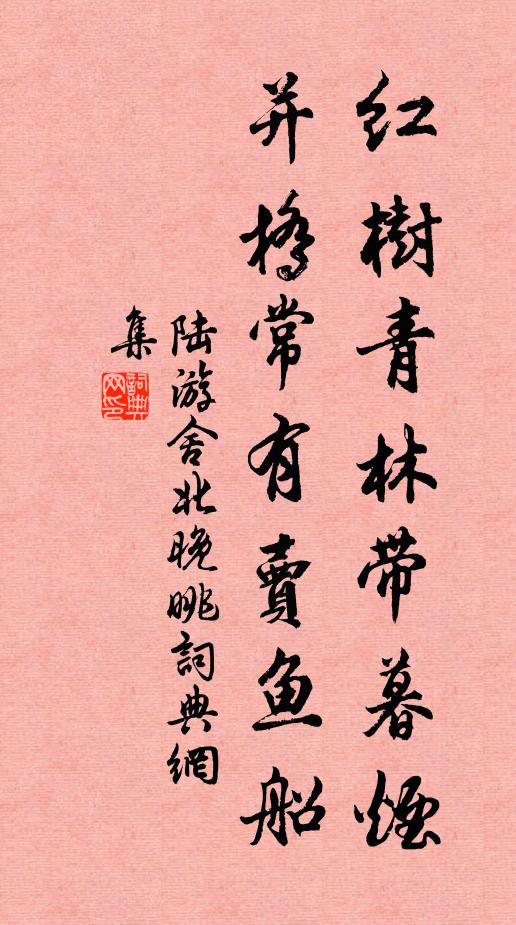 红樹青林带暮煙
并橋常有賣鱼船
陆游舍北晚眺詞典網
集
詞典
网印